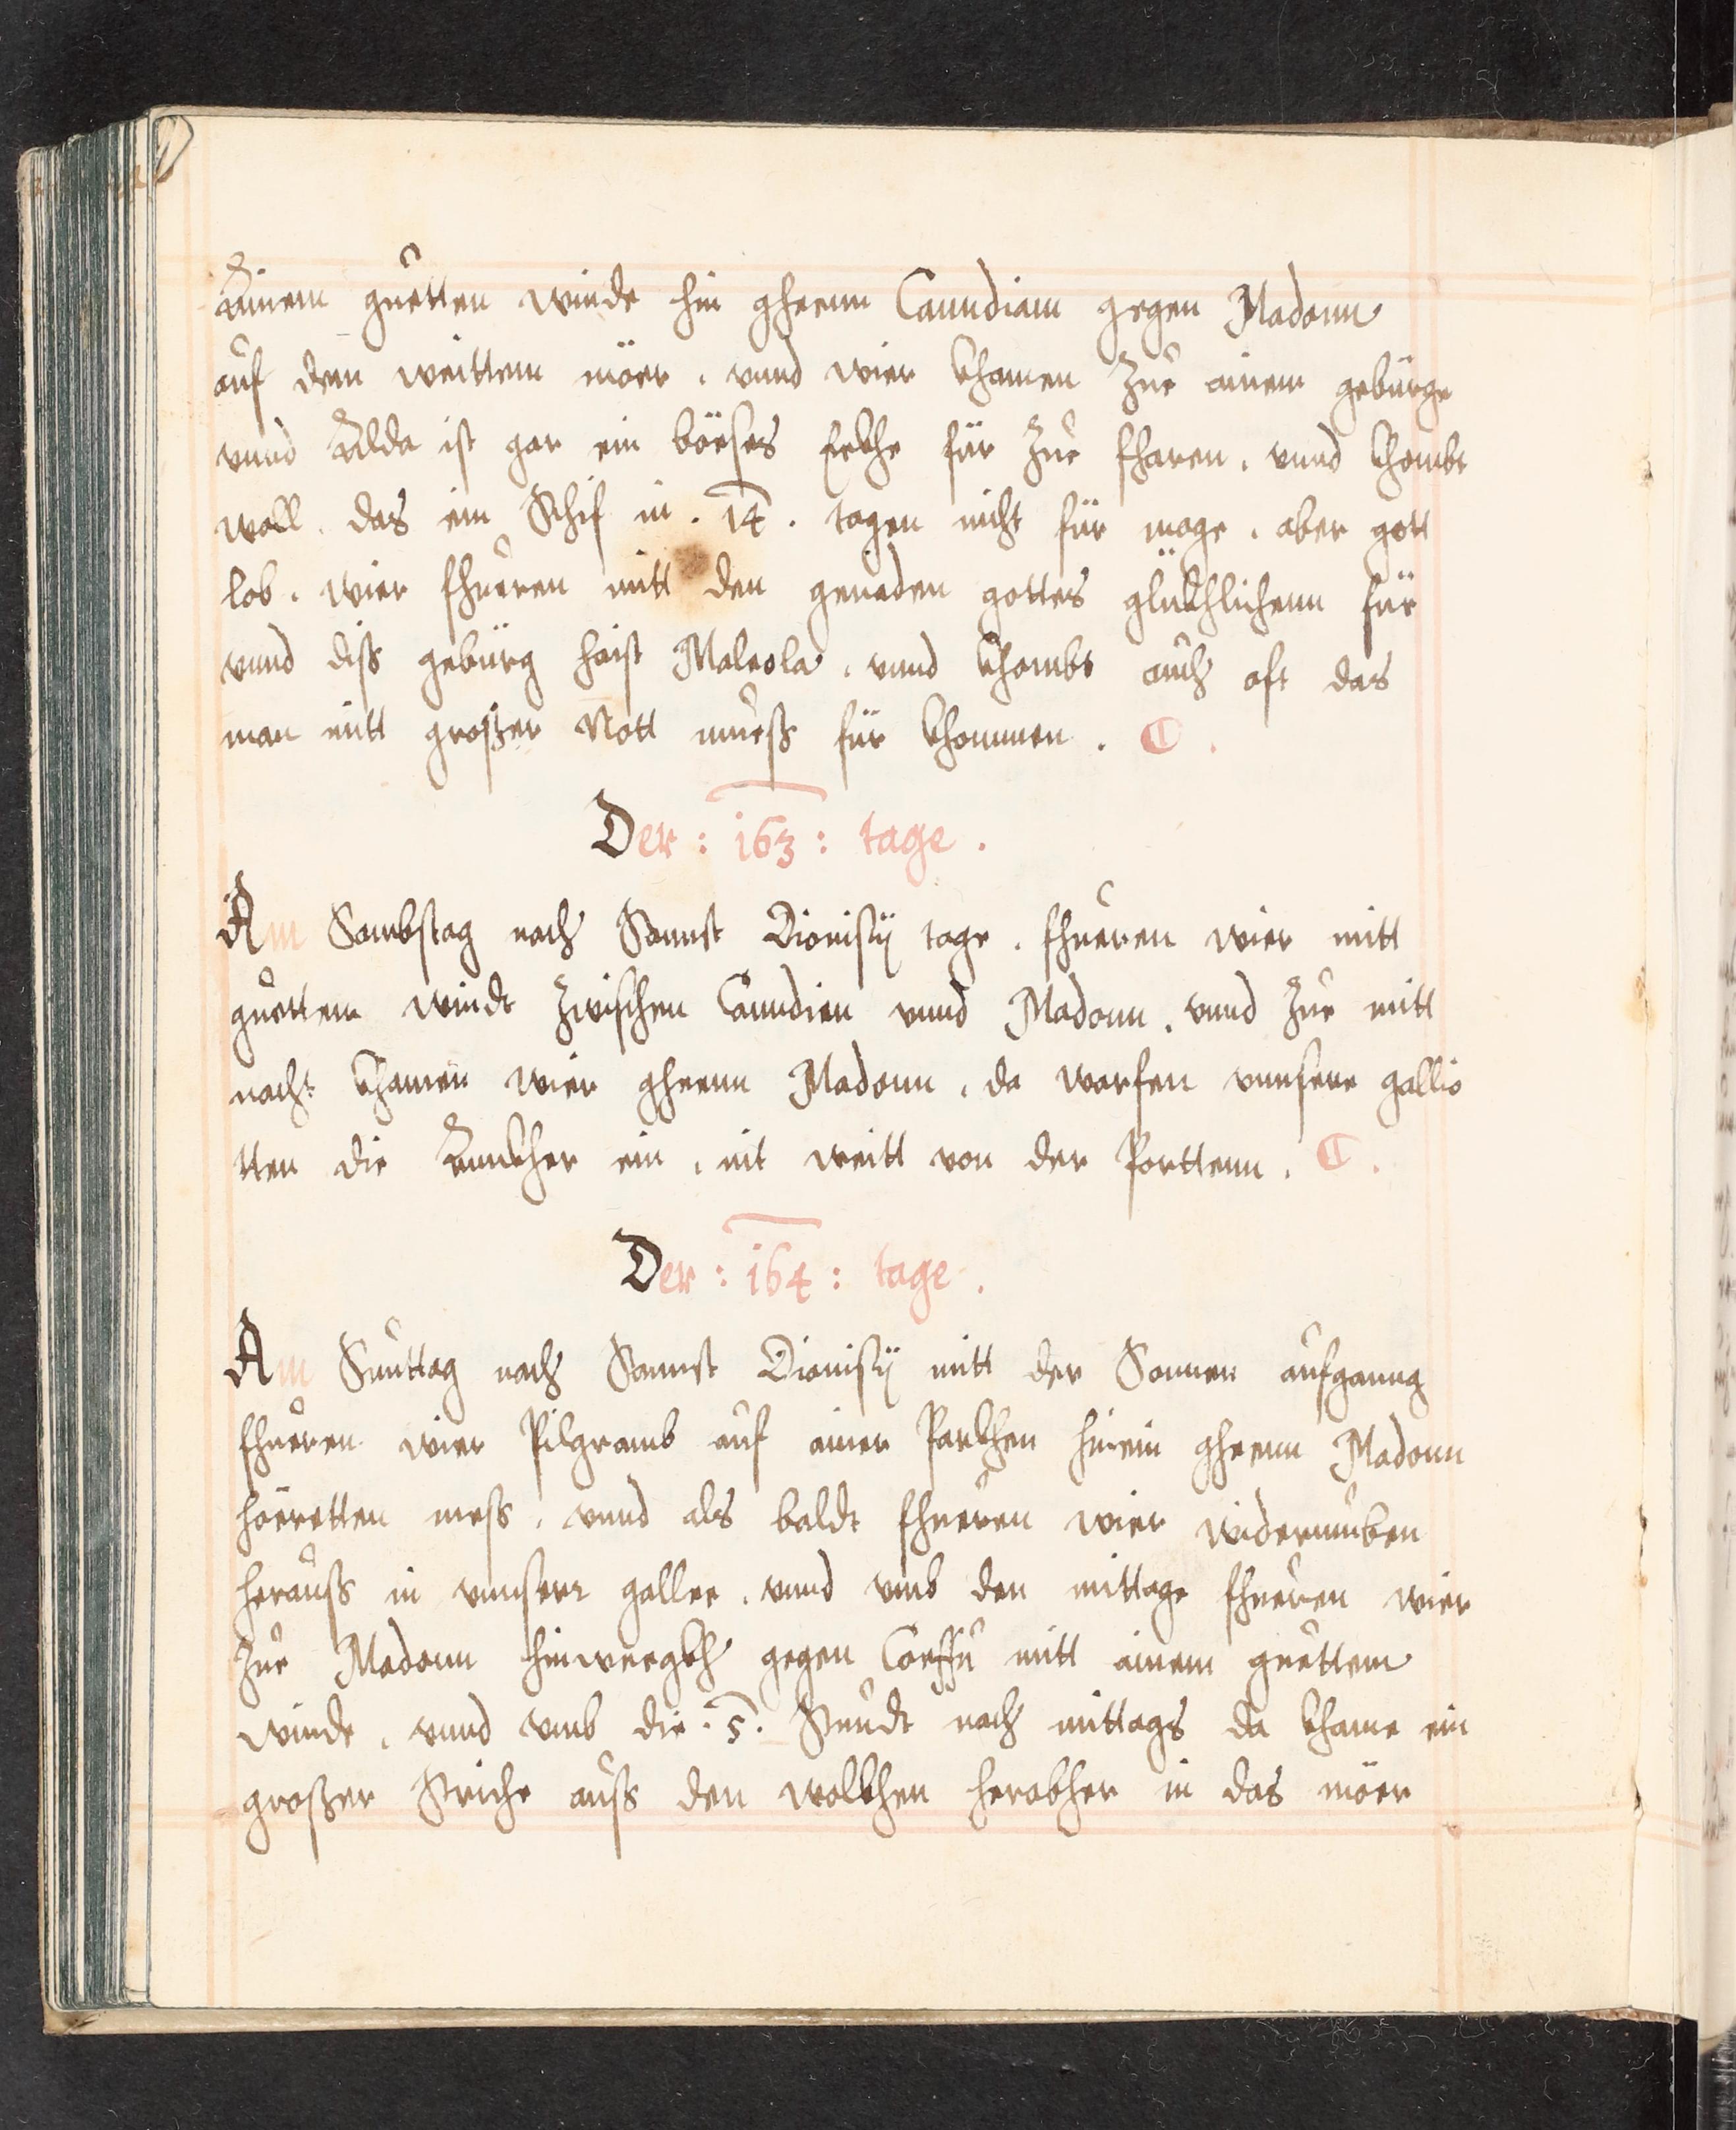 Äinem guetten winde hin gheenn Canndiam gegen Madonn
auf dem weittem möer . vnnd wier khamen Zue ainem gebürge
vnnd Ällda ist gar ein böeses Eekhe für Zue fharen . vnnd khombt
woll . das ein Schif in . 14 . tagen nicht für mage . aber gott
lob . wier fhueren mitt den genaden gottes glükhlichenn für
vnnd diß gebürg haist Maleola . vnnd khombt auch oft das
man mitt großer Nott mueß für khommen . C .
Der : 163 : tage .
Am Sambstag nach Sannst Dionisÿ tage . fhueren wier mitt
guettem windt Zwischen Canndien vnnd Madonn . vnnd Zue mitt
nacht khamen wier gheenn Madonn . da warfen vnnsere gallio
tten die Ännkher ein . nit weitt von der Porttenn . C .
Der : 164 : tage .
Am Sunttag nach Sannst Dionisÿ mitt der Sonnen aufganng
fhueren wier Pilgramb auf ainer Parkhen hinein gheenn Madonn
höeretten meß . vnnd als baldt fhueren wier widerumben
herauß in vnnsere gallee . vnnd vmb den mittage fhueren wier
Zue Madonn hinweegkh gegen Corffu mitt ainem guettem
winde . vnnd vmb die . 5 . Stundt nach mittags da khame ein
großer Striche auß den wolkhen herabher in das möer